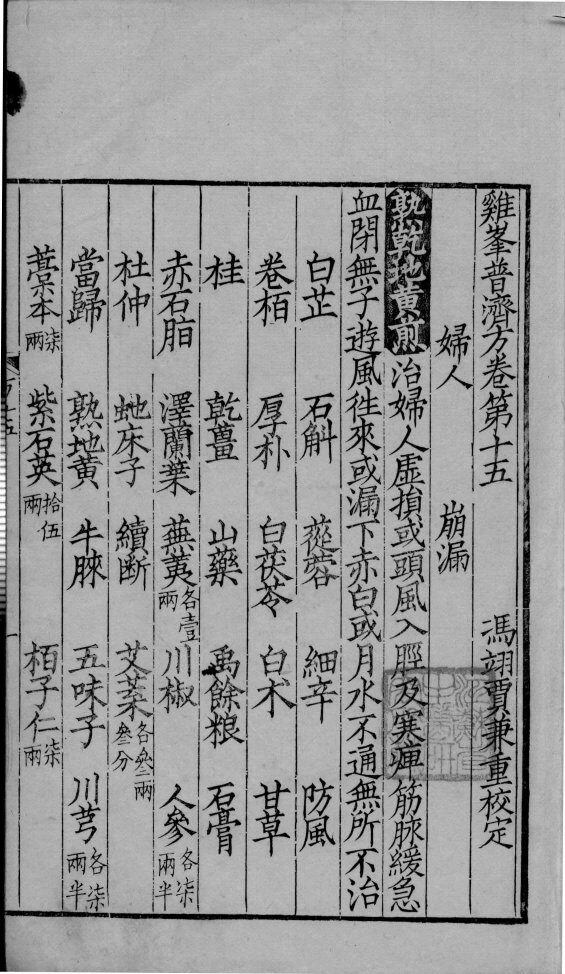 雞峯普濟方卷第十五　馮翊賈兼重校定
婦人　崩漏
熟乾地黃煎治婦人虛損或頭風入脛及寒痺筋脉緩急
血閉無子遊風往來或漏下赤白或月水不通無所不治
白芷　石斛　蓯蓉　細辛　防風
卷栢　厚朴　白茯苓　白术　甘草
桂　乾薑　山藥　禹餘粮　石膏
赤石脂　澤蘭葉　蕪荑各壹兩　川椒　人參各柒兩半
杜仲　虵床子　續斷　艾葉各叄兩叄分
當歸　熟地黃　牛膝　五味子　川芎各柒兩半
藁本柒兩　紫石英拾伍兩　栢子仁柒兩